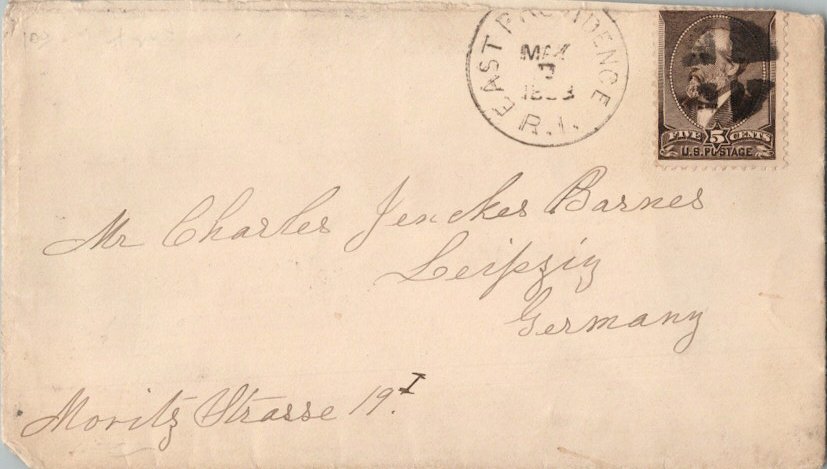 EAST PROVIDENCE
R.I.
FIVE 5 CENTS
U.S. POSTAGE
Mr Charles Jenckes Barnes
Leipzig
Germany
Moritz Strasse 19. I